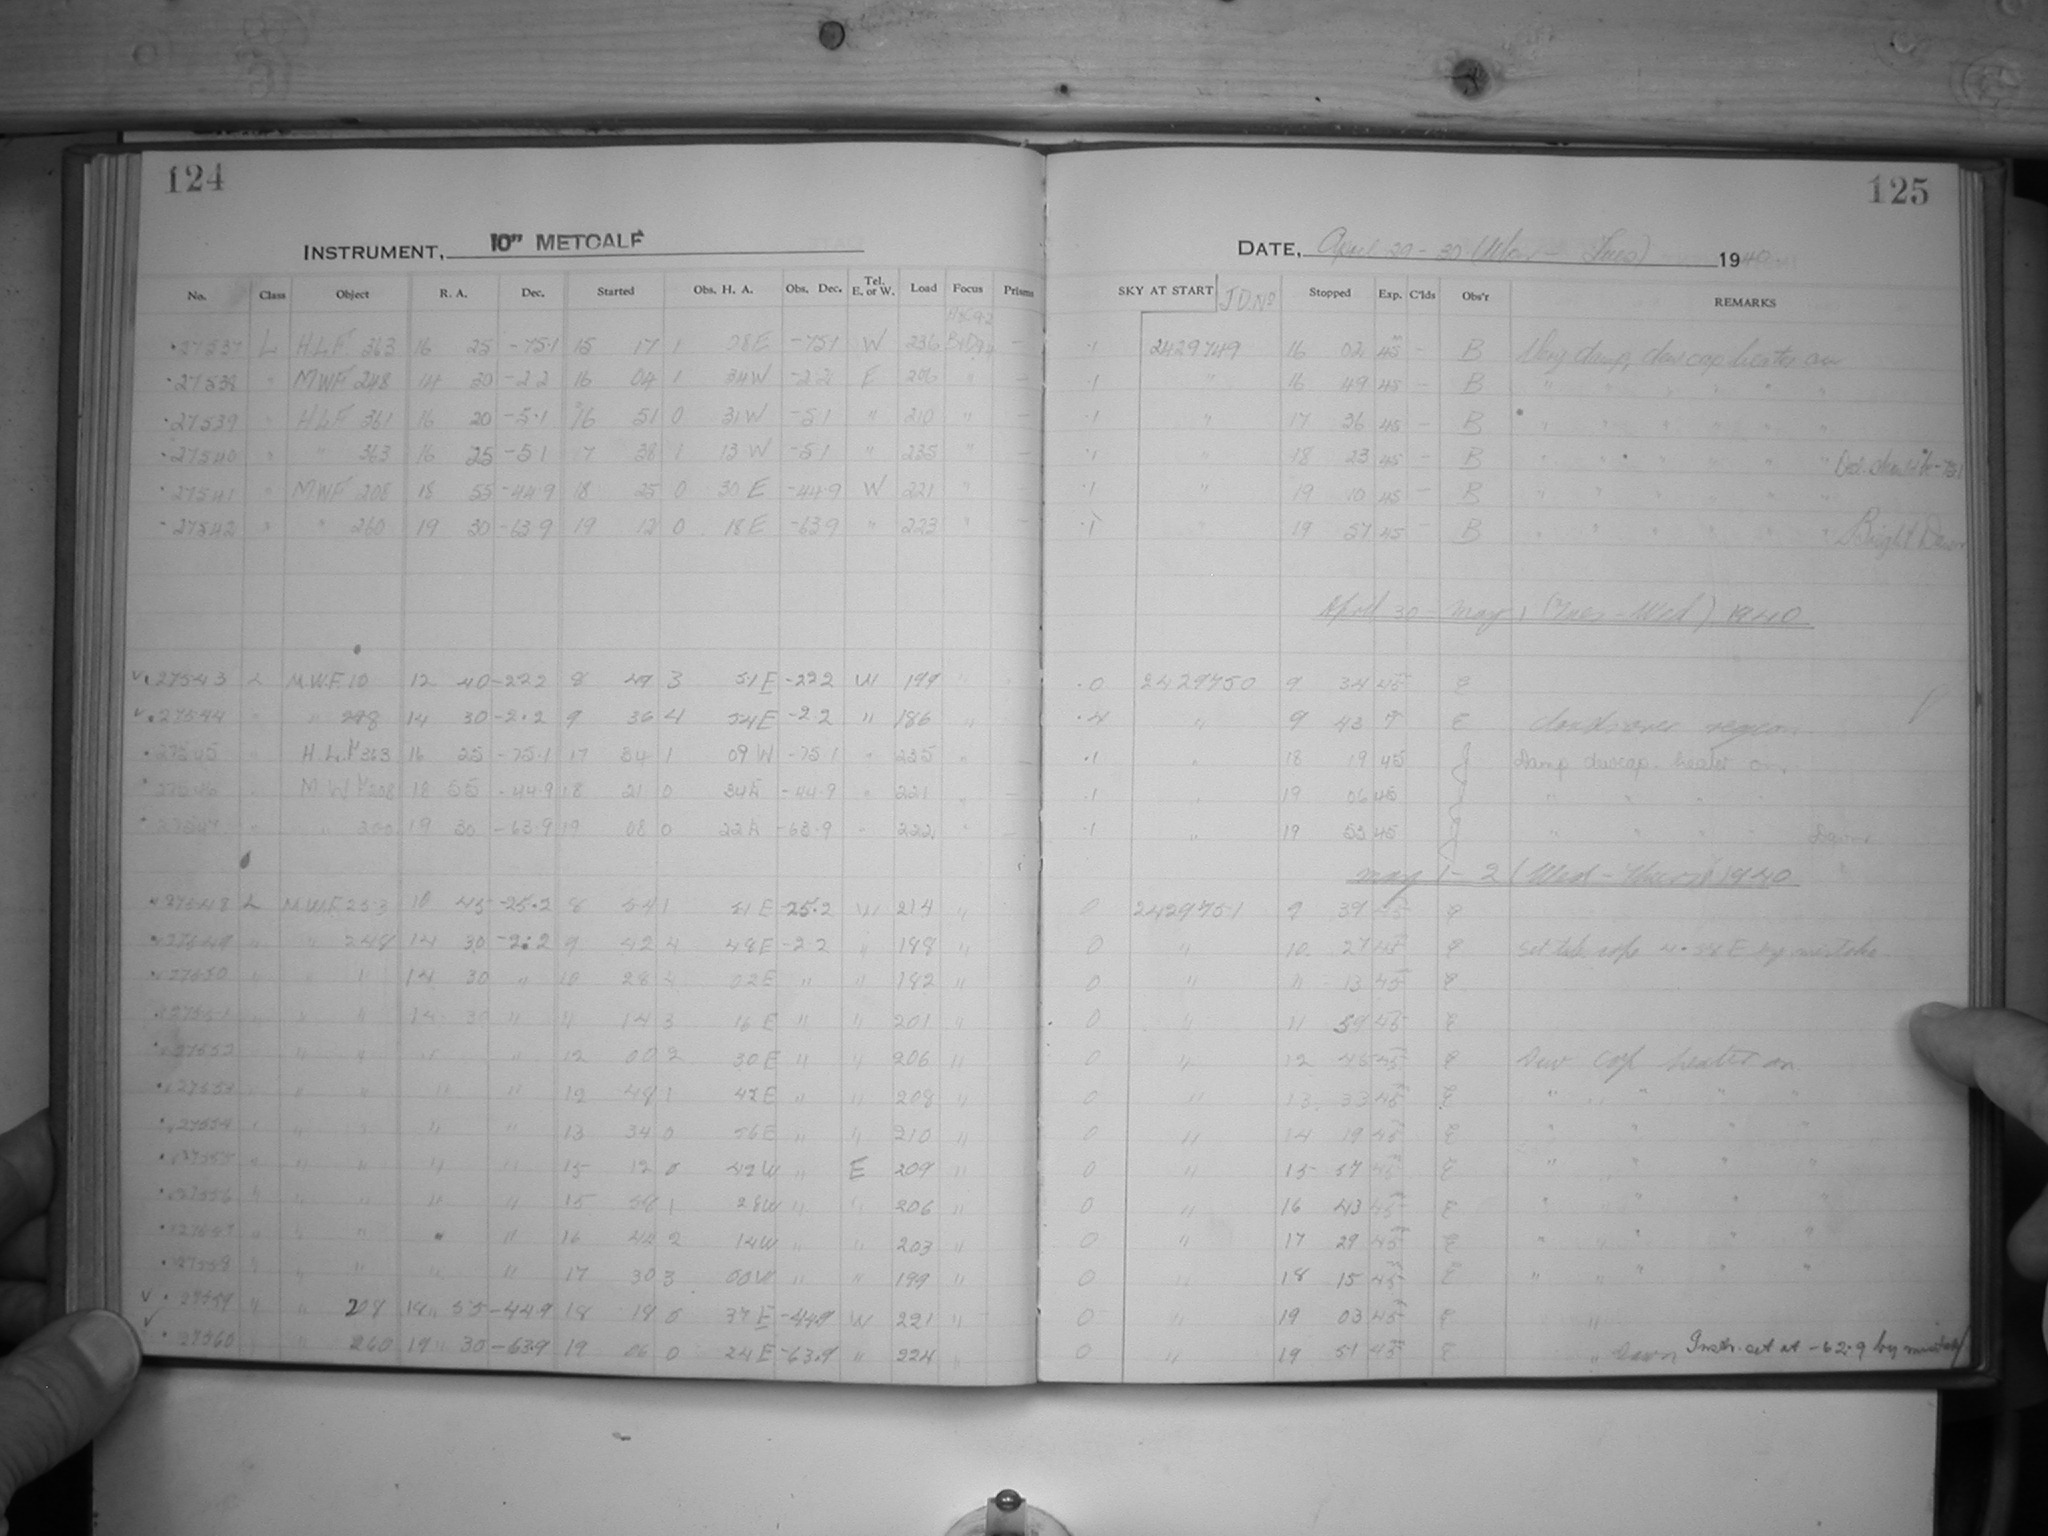 124
INSTRUMENT, 10" METCALF
No. Class Object R. A. Dec. Started Obs. H. A. Obs. Dec. Tel. E. or W. Load Focus Prisms
27537 L H.L.F. 363 16 25 -75.1 15 17 1 08E -75.1 W 236 —
27538 " MWF 248 14 30 -2.2 16 04 1 34W -2.2 E 206 " —
27539 " HLF 361 16 20 -5.1 16 51 0 31W -5.1 " 210 " —
27540 " " 363 16 25 -5.1 17 38 1 13 W -5.1 " 235 " —
27541 " MWF 208 18 55 -44.9 18 25 0 30 E -44.9 W 221 " —
27542 " " 260 19 30 -63.9 19 12 0 18E -63.9 " 223 " —
27543 L M.W.F. 10 12 40 -22.2 8 49 3 51E -22.2 W 199 "
27544 " " 14 30 -2.2 9 36 4 54E -2.2 " 186 "
27545 " H.L.F 363 16 25 -75.1 17 34 1 09 W -75.1 " 235 " —
27546 " M W F 208 18 55 -44.9 18 21 0 34E -44.9 " 221 " —
27547 " " 19 30 -63.9 19 08 0 22E -63.9 " 222 " —
27548 L M.W.F. 253 10 45 -25.2 8 54 1 51 E 25.2 W 214 "
27549 " " 248 14 30 -2.2 9 42 4 48E -2.2 " 188 "
27550 " " " 14 30 " 10 28 4 02E " " 182 "
27551 " " " 14 30 " 11 14 3 16 E " " 201 "
27552 " " " " " 12 00 2 30E " " 206 "
27553 " " " " " 12 48 1 42E " " 208 "
27554 " " " " " 13 34 0 56E " " 210 "
27555 " " " " " 15 12 0 42W " E 209 "
27556 " " " " " 15 58 1 28W " " 206 "
27557 " " " " " 16 44 2 14W " " 203 "
27558 " " " " " 17 30 3 00W " " 199 "
27559 " " 208 18 55 -44.9 18 18 0 37E -44.9 W 221 "
27560 " 260 19 30 -63.9 19 06 0 24E -63.9 " 224 "
125
DATE, April 29 - 30 (Mon - Tues) 1940
SKY AT START J.D. No Stopped Exp. C'lds Obs'r REMARKS
.1 2429749 16 02 45 — B Very damp, dewcap heater on
.1 " 16 49 45 — B " " " " " "
.1 " 17 36 45 — B " " " " " "
.1 " 18 23 45 — B " " " " " " Dec. should be -75.1
.1 " 19 10 45 — B " " " " " "
.1 " 19 57 45 — B " " " " " " Bright Dawn
April 30 - May 1 (Tues - Wed) 1940
.0 2429750 9 34 45 E
.4 " 9 43 7 E clouds over region
.1 " 18 19 45 J Damp dewcap heater on
.1 " 19 06 45 J " " " "
.1 " 19 53 45 J " " " " Dawn
May 1 - 2 (Wed - Thurs) 1940
0 2429751 9 39 45 E
0 " 10 27 45 E Set telescope 4.58 E by mistake
0 " 11 13 45 E
0 " 11 59 45 E
0 " 12 45 45 E Dew cap heater on
0 " 13 33 45 E " " " " "
0 " 14 19 45 E " " " "
0 " 15 57 45 E " " " "
0 " 16 43 45 E " " " "
0 " 17 29 45 E " " " " "
0 " 18 15 45 E " " " " "
0 " 19 03 45 E "
0 " 19 51 45 E " Dawn Instr. set at -62.9 by mistake